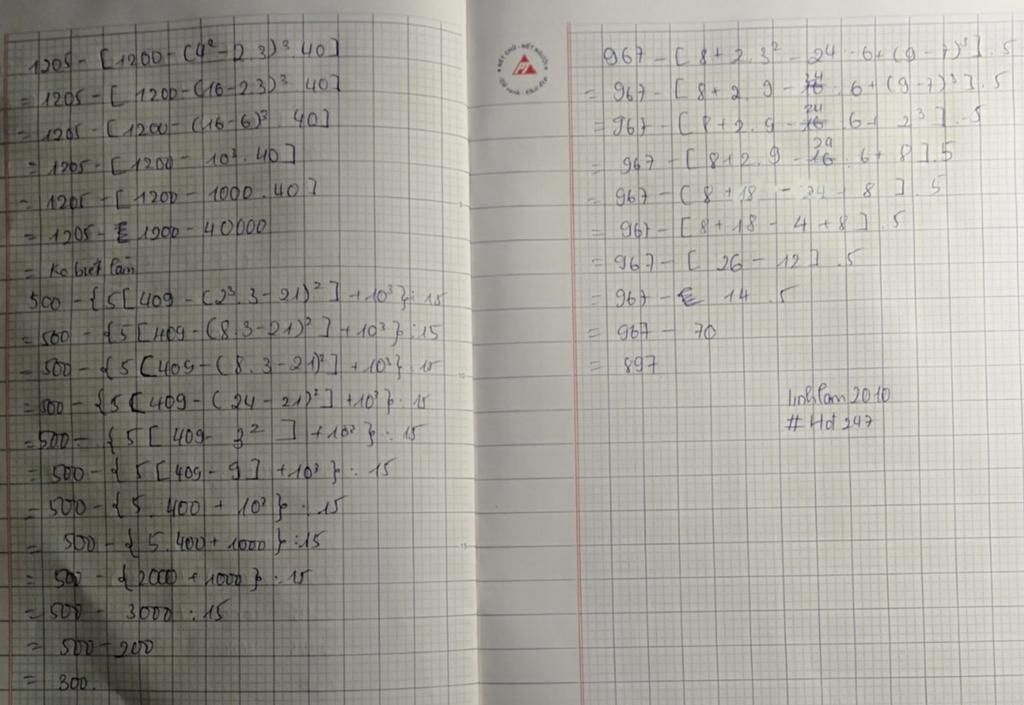 1205 - [1200 - (4² - 2.3)³ : 40]
= 1205 - [1200 - (16 - 2.3)³ . 40]
= 1205 - [1200 - (16 - 6)³ . 40]
= 1205 - [1200 - 10³ . 40]
= 1205 - [1200 - 1000 . 40]
= 1205 - 1200 - 40000
= Ko biết làm
500 - {5[409 - (2³.3 - 21)²] + 10³} : 15
= 500 - {5[409 - (8.3 - 21)²] + 10³} : 15
= 500 - {5[409 - (8.3 - 21)²] + 10³} : 15
= 500 - {5[409 - (24 - 21)²] + 10³} : 15
= 500 - {5[409 - 3²] + 10³} : 15
= 500 - {5[409 - 9] + 10³} : 15
= 500 - {5.400 + 10³} : 15
= 500 - {5.400 + 1000} : 15
= 500 - {2000 + 1000} : 15
= 500 - 3000 : 15
= 500 - 200
= 300.
NÉT CHỮ - NẾT NGƯỜI
967 - [8 + 2.3² - 24 : 6 + (9 - 7)³] . 5
= 967 - [8 + 2.9 - 24 : 6 + (9 - 7)³] . 5
= 967 - [8 + 2.9 - 24 : 6 + 2³] . 5
= 967 - [8 + 2.9 - 24 : 6 + 8] . 5
= 967 - [8 + 18 - 24 + 8] . 5
= 967 - [8 + 18 - 4 + 8] . 5
= 967 - [26 - 12] . 5
= 967 - 14 . 5
= 967 - 70
= 897
linhlam2010
# Hd247